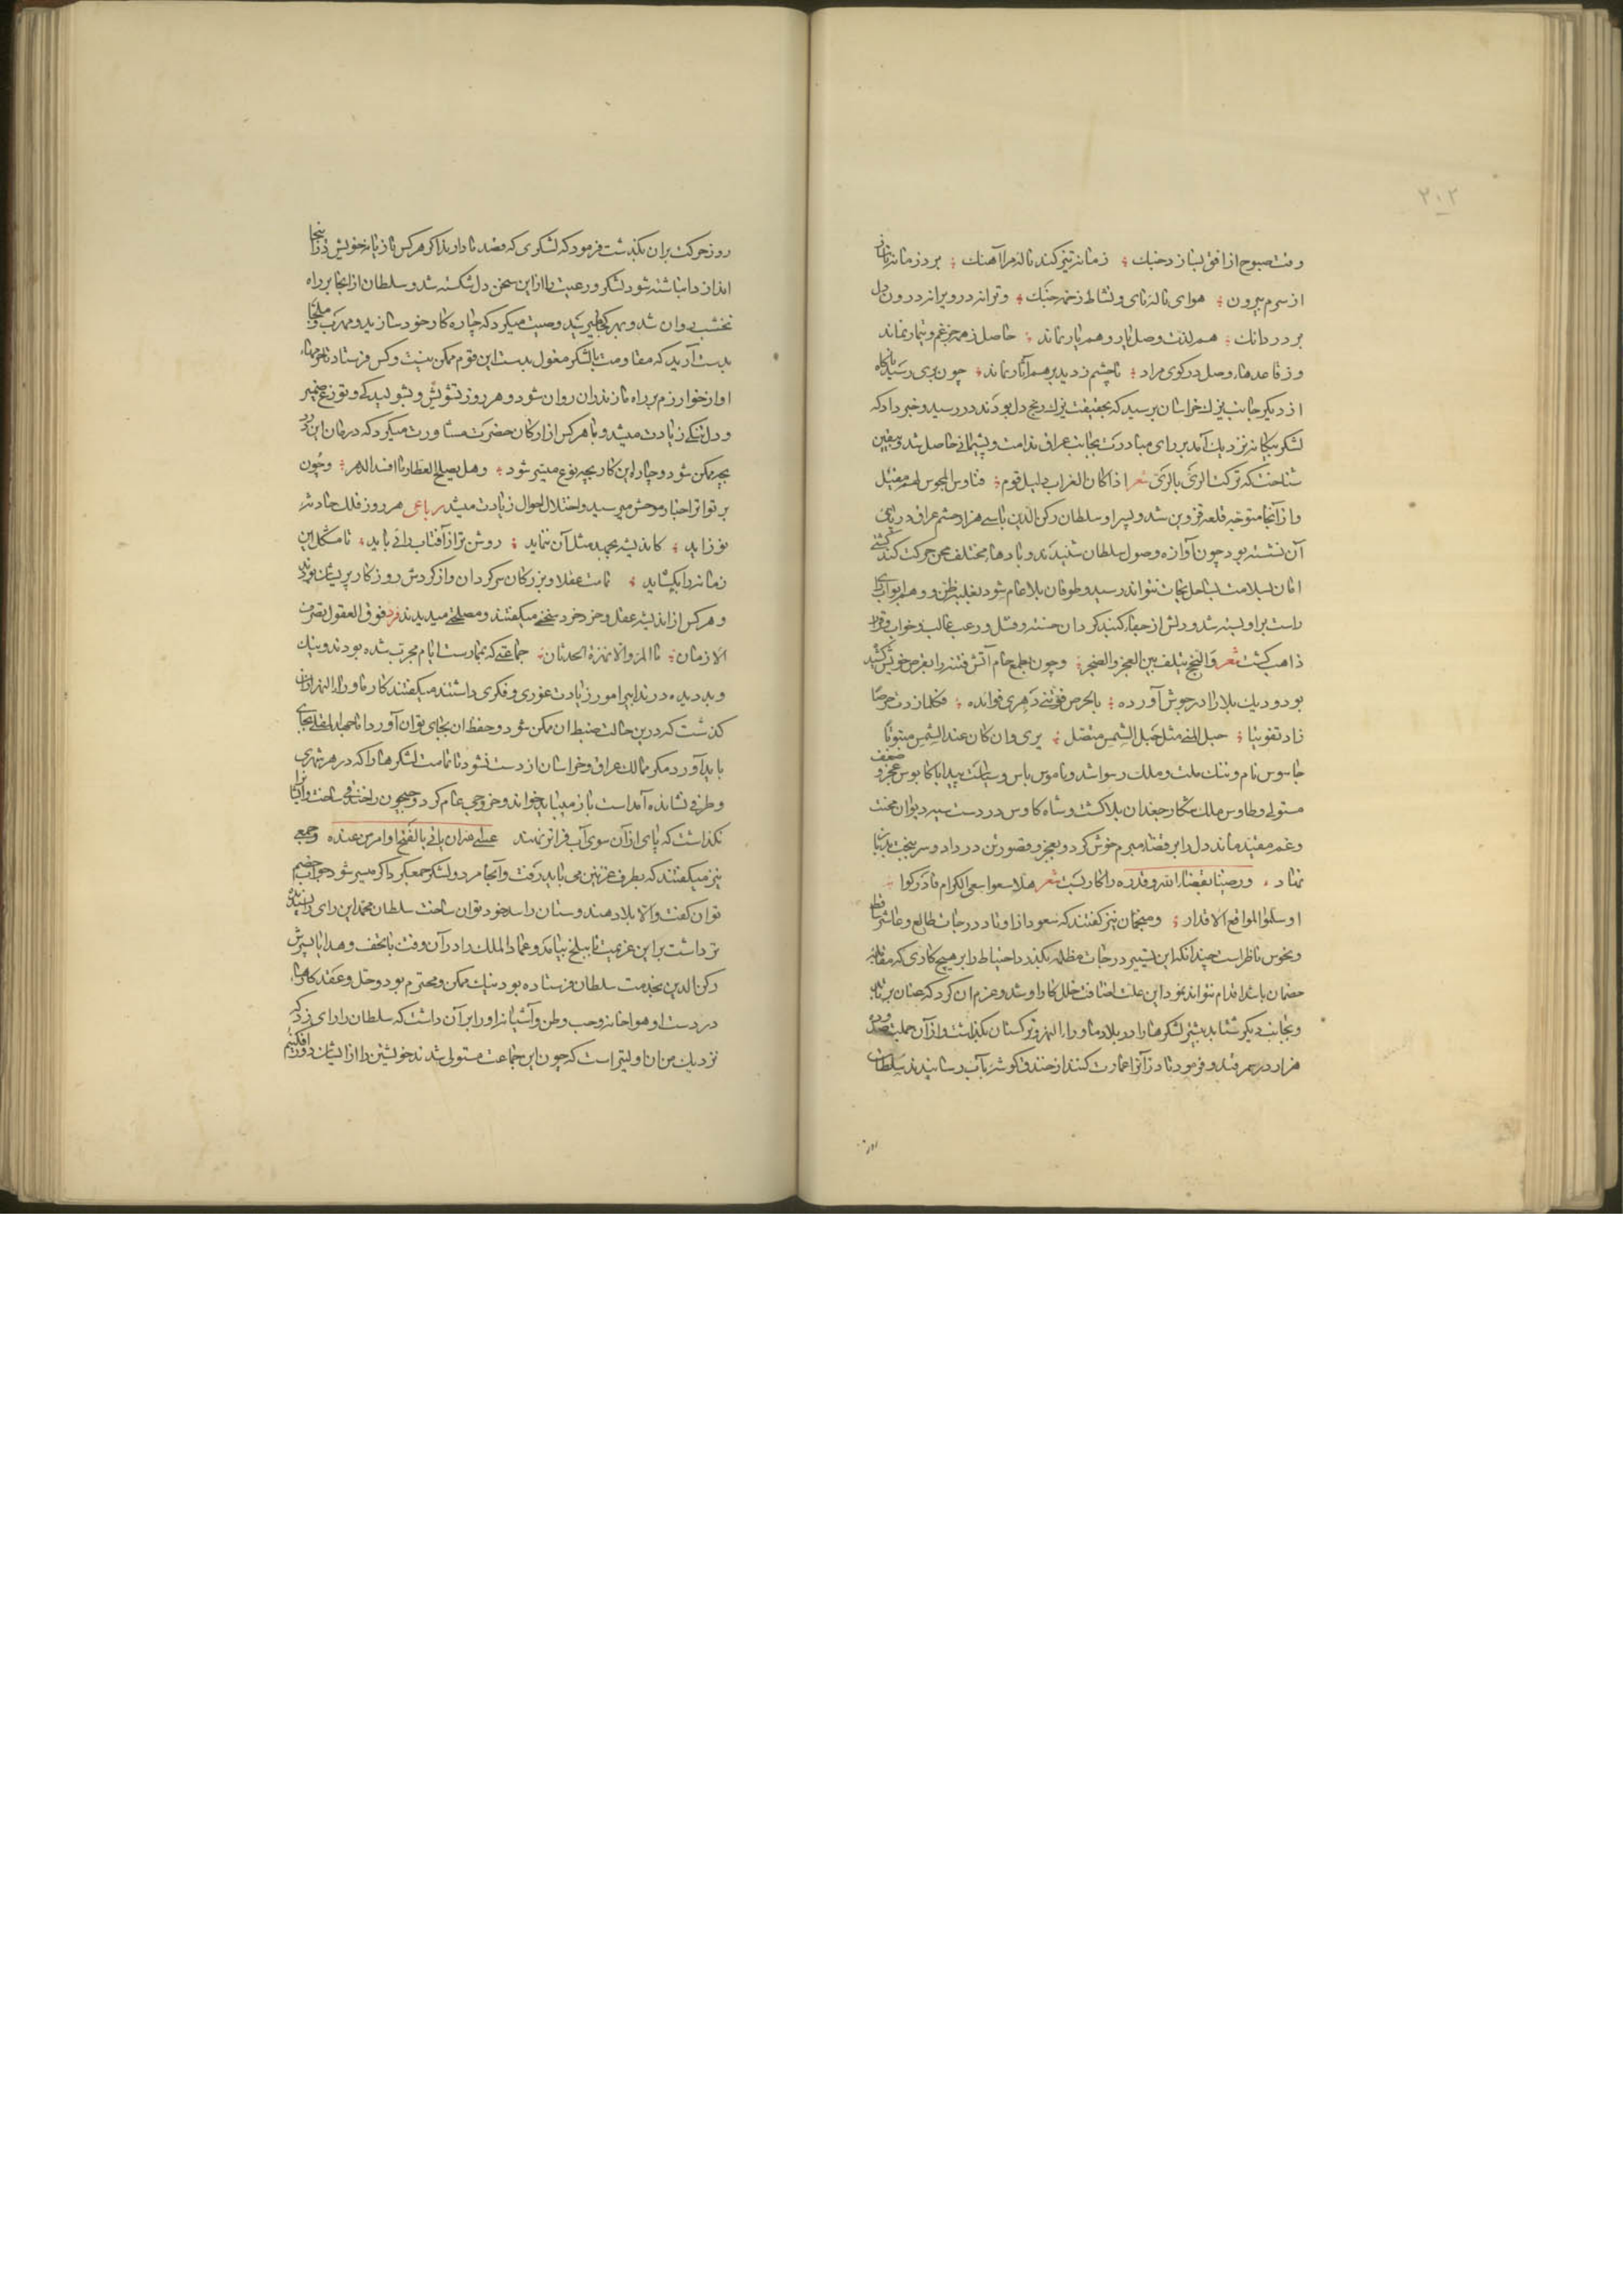 ۲۰۲
وقت صبوح از افق بساز دخنك زمانه تیز کند ناله مرا آهنك برد زمانه
از سرم بیرون هوای ناله نای و نشاط زخمه چنك و ترانه درد ویرانه درون دل
بردردانك هم لذت وصل یار و هم یار نماند حاصل زمه جز غم و تیمار نماند
وز قاعدهاء وصل در کوی مراد تا چشم زدیم بر هم آثار نماند چون بری رسید ناکاه
از دیکر جانب یزك خراسان برسید که بحقیقت یزك رنج دل بودند در رسید و خبر داد که
لشکر بیکانه نزدیك آمد بر رای مبادرت بجانب عراق ندامت و پشیمانی حاصل شد و یقین
شناخت که ترکت الرّی بالرّی شعر اذا کان الغراب دلیل قوم فناوس المجوس لهم مقیل
و از آنجا متوجه قلعه قزوین شد و پسر او سلطان رکن الدین با سی هزار حشم عراق در پای
آن نشسته بود چون آوازه وصول سلطان شنیدند و بادهاء مختلف حرکت کند کشتی
امان بسلامت بساحل نجات نتواند رسید و طوفان بلا عام شود بغلبه ظن و وهم ابواب رای
راست بر او بسته شد و دلش از جفاء کنبد کردان خسته و فشل و رعب غالب و خواب و قرار
ذاهب کشت شعر والنجح یتلف بین العجز والضجر و چون بطمع خام آتش فتنه را بغرض خویش کشید
بود و دیك بلا را در جوش آورده بالحرص فوّتنی دهری فوائده فکلما زدت حرصا
زاد تفویتا حبل المنی مثل حبل الشمس متصل یری وان کان عند الشمس مبتوتا
جاسوس نام و ننك ملت و ملك رسوا شد و ناموس باس و سیاست پیدا با کابوس عجز و ضعف
مستولی و طاوس ملك شکار جغدان بلا کشت و شاه کاوس در دست سپر دیوان محنت
و غم مقید ماند دل را بر قضاء مبرم خوش کرد و بعجز و قصور تن درداد و سر بخت
نهاد و رضینا بقضاء الله و قدره را کار بست شعر هلا سعوا سعی الکرام فادرکوا
او سلّموا لمواقع الاقدار و منجمان نیز کفتند که سعود از اوتاد درجات طالع و عاشر ساقط
و نحوس ناظر است چندانکه این تسییر درجات مظلمه بکذرد احتیاط را بر هیچ کاری که مقابله
خصمان باشد اقدام نتواند نمود این علت اضافت خلل کار او شد و عزم ان کرد که عنان برتابد
و بجانب دیکر شتابد بیشتر لشکرها را در بلاد ماوراء النهر و ترکستان بکذاشت و از آن جملت صد و ده
هزار در سمرقند و فرمود تا دز آنرا عمارت کنند از خندق کوشه بآب رسانیدند سلطان
روز
روز حرکت بران بکذشت فرمود که لشکری که قصد ما دارند اکر هر کس تازیانه خویش در اینجا
اندازد انباشته شود لشکر و رعیت را از این سخن دل شکسته شد و سلطان از انجا بر راه
نخشب روان شد و بهر کجا میرسید وصیت میکرد که چاره کار خود سازید و مهرب و ملجا
بدست آرید که مقاومت با لشکر مغول بدست این قوم ممکن نیست و کس فرستاد تا حرمهاء
او از خوارزم بر راه مازندران روان شود و هر روز تشویش و بشولیدکی و توزع ضمیر
و دل تنکی زیادت میشد و با هر کس از ارکان حضرت مشاورت میکرد که درمان این درد
بچه ممکن شود و چاره این کار بچه نوع میسر شود وهل یصلح العطار ما افسد الدهر و چون
بر تواتر اخبار موحش میرسید و اختلال احوال زیادت میشد رباعی هر روز فلك حادثه
نوزاید کاندیشه بجهد مثل آن ننماید روشن تر از آفتاب رائی باید تا مشکل این
زمانه را بکشاید تمامت عقلا و بزرکان سرکردان و از کردش روزکار پریشان بودند
و هر کس از اندیشه عقل و خرد خرد سخنی میکفتند و مصلحتی میدیدند فرد فوق العقول تصرّف
الازمان ما المرء الا نهزة الحدثان جماعتی که بممارست ایام مجرب شده بودند و نیك
و بد دیده در تدابیر امور زیادت غوری و فکری داشتند میکفتند کار ماوراء النهر از آن
کذشت که درین حالت ضبط ان ممکن شود و حفظ ان بجای توان آورد اما جهد المقل بجای
باید آورد مکر ممالك عراق و خراسان از دست نشود تمامت لشکرها را که در هر شهری
و طرفی نشانده آمد است باز می باید خواند و خروجی عام کرد و جیحون را خندقی ساخت و ایشانرا
نکذاشت که پای از آن سوی آب فراتر نهند عسی الله ان یاتی بالفتح او امر من عنده و جمعی
نیز میکفتند که بطرف غزنین می باید رفت و آنجا مرد و لشکر جمع کرد اکر میسر شود جواب خصم
توان کفت و الا بلاد هندوستان را سد خود توان ساخت سلطان محمد این رای را پسندیده
تر داشت بر این عزیمت تا ببلخ بیامد و عماد الملك را در آن وقت با تحف و هدایا پسرش
رکن الدین بخدمت سلطان فرستاده بود نیك ممکن و محترم بود و حل و عقد کارها
در دست او هوا خانه و حب وطن و آشیانه او را بر آن داشت که سلطان را رای زد که
نزدیك من آن اولیتر است که چون این جماعت مستولی شدند خویشتن را از ایشان دور افکنیم